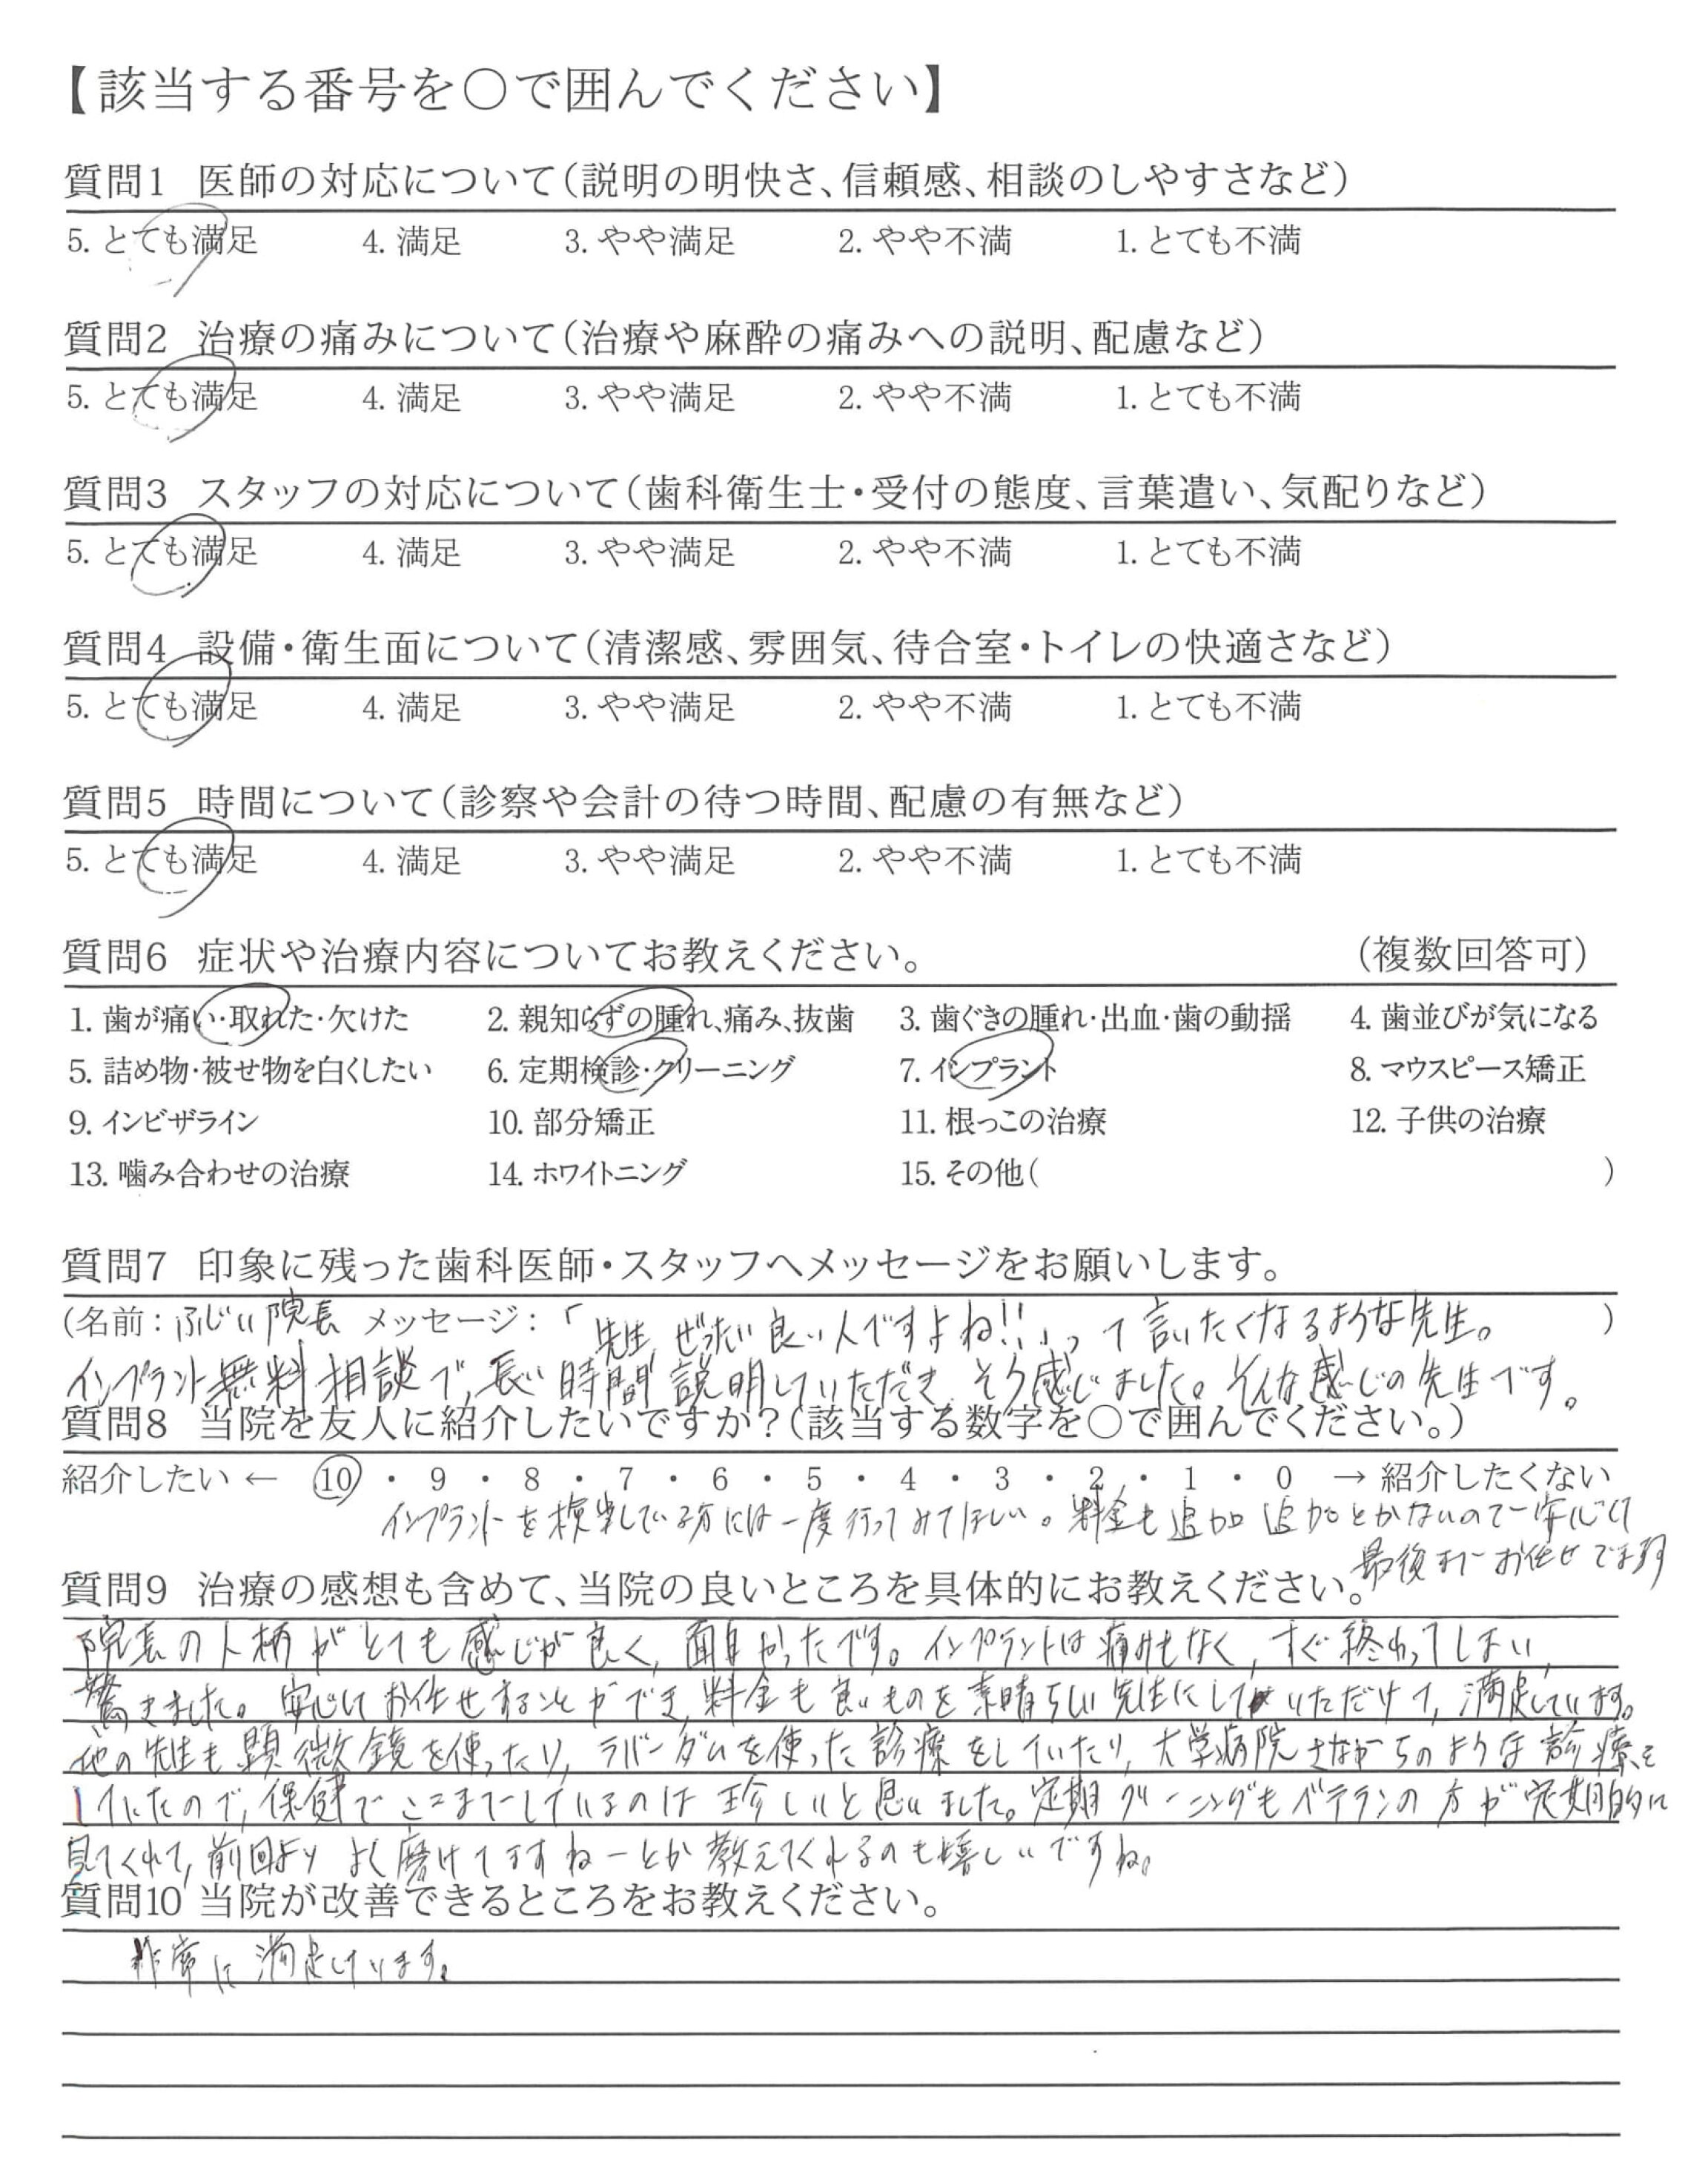 【該当する番号を○で囲んでください】
質問1 医師の対応について（説明の明快さ、信頼感、相談のしやすさなど）
5. とても満足 4. 満足 3. やや満足 2. やや不満 1. とても不満
質問2 治療の痛みについて（治療や麻酔の痛みへの説明、配慮など）
5. とても満足 4. 満足 3. やや満足 2. やや不満 1. とても不満
質問3 スタッフの対応について（歯科衛生士・受付の態度、言葉遣い、気配りなど）
5. とても満足 4. 満足 3. やや満足 2. やや不満 1. とても不満
質問4 設備・衛生面について（清潔感、雰囲気、待合室・トイレの快適さなど）
5. とても満足 4. 満足 3. やや満足 2. やや不満 1. とても不満
質問5 時間について（診察や会計の待つ時間、配慮の有無など）
5. とても満足 4. 満足 3. やや満足 2. やや不満 1. とても不満
質問6 症状や治療内容についてお教えください。 （複数回答可）
1. 歯が痛い・取れた・欠けた 2. 親知らずの腫れ、痛み、抜歯 3. 歯ぐきの腫れ・出血・歯の動揺 4. 歯並びが気になる
5. 詰め物・被せ物を白くしたい 6. 定期検診・クリーニング 7. インプラント 8. マウスピース矯正
9. インビザライン 10. 部分矯正 11. 根っこの治療 12. 子供の治療
13. 噛み合わせの治療 14. ホワイトニング 15. その他（ ）
質問7 印象に残った歯科医師・スタッフへメッセージをお願いします。
（名前：ふじい院長 メッセージ：「先生、ぜったい良い人ですよね!!」って言いたくなるような先生。 ）
インプラント無料相談で、長い時間説明していただき、そう感じました。そんな感じの先生です。
質問8 当院を友人に紹介したいですか？（該当する数字を○で囲んでください。）
紹介したい ← 10 ・ 9 ・ 8 ・ 7 ・ 6 ・ 5 ・ 4 ・ 3 ・ 2 ・ 1 ・ 0 → 紹介したくない
インプラントを検案している方には一度行ってみてほしい。料金も追加追加とかないので安心して
最後までお任せできます
質問9 治療の感想も含めて、当院の良いところを具体的にお教えください。
院長の人柄がとても感じが良く、面白かったです。インプラントは痛みもなく、すぐ終わってしまい、
驚きました。安心してお任せすることができ、料金も良いものを素晴らしい先生にしていただけて、満足しています。
他の先生も顕微鏡を使ったり、ラバーダムを使った診療をしていたり、大学病院さながらのような診療を
していたので、保健でここまでしているのは珍しいと思いました。定期クリーニングもベテランの方が定期的に
見てくれて、前回より よく磨けてますねーとか教えてくれるのも嬉しいですね。
質問10 当院が改善できるところをお教えください。
非常に満足しています。